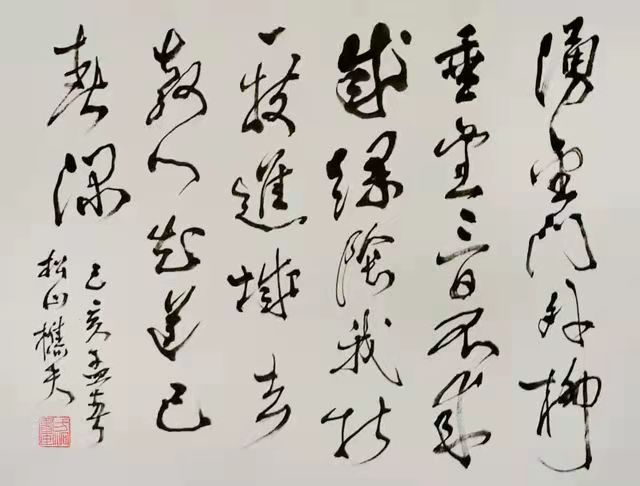 湧金門外柳
垂金三日不來
成綠陰我折
一枝進城去
教人知道已
春深
己亥孟春
松山樵夫